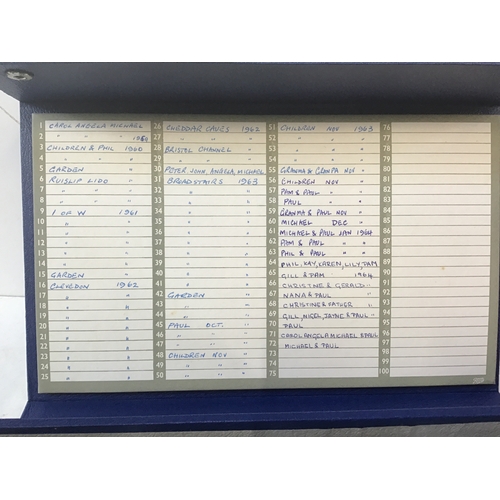 1 CAROL ANGELA MICHAEL
2 " " " 1959
3 CHILDREN & PHIL 1960
4 " " "
5 GARDEN "
6 RUISLIP LIDO "
7 " " "
8 " " "
9 I OF W 1961
10 " "
11 " "
12 " "
13 " "
14 " "
15 GARDEN "
16 CLEVEDON 1962
17 " "
18 " "
19 " "
20 " "
21 " "
22 " "
23 " "
24 " "
25 " "
26 CHEDDAR CAVES 1962
27 " " "
28 BRISTOL CHANNEL "
29 " " "
30 PETER, JOHN, ANGELA, MICHAEL
31 BROADSTAIRS 1963
32 " "
33 " "
34 " "
35 " "
36 " "
37 " "
38 " "
39 " "
40 " "
41 " "
42 GARDEN "
43 " "
44 " "
45 PAUL OCT. "
46 " " "
47 " " "
48 CHILDREN NOV "
49 " " "
50 " " "
51 CHILDREN NOV 1963
52 " " "
53 " " "
54 " " "
55 GRANMA & GRANPA NOV "
56 CHILDREN NOV "
57 PAM & PAUL "
58 PAUL "
59 GRANMA & PAUL NOV "
60 MICHAEL DEC "
61 MICHAEL & PAUL JAN 1964
62 PAM & PAUL " "
63 PHIL & PAUL " "
64 PHIL, KAY, KAREN, LILY, PAM
65 GILL & PAM 1964
66 CHRISTINE & GERALD "
67 NANA & PAUL "
68 CHRISTINE & FATHER "
69 GILL, NIGEL, JAYNE & PAUL "
70 PAUL
71 CAROL ANGELA MICHAEL & PAUL
72 MICHAEL & PAUL
73
74
75
76
77
78
79
80
81
82
83
84
85
86
87
88
89
90
91
92
93
94
95
96
97
98
99
100